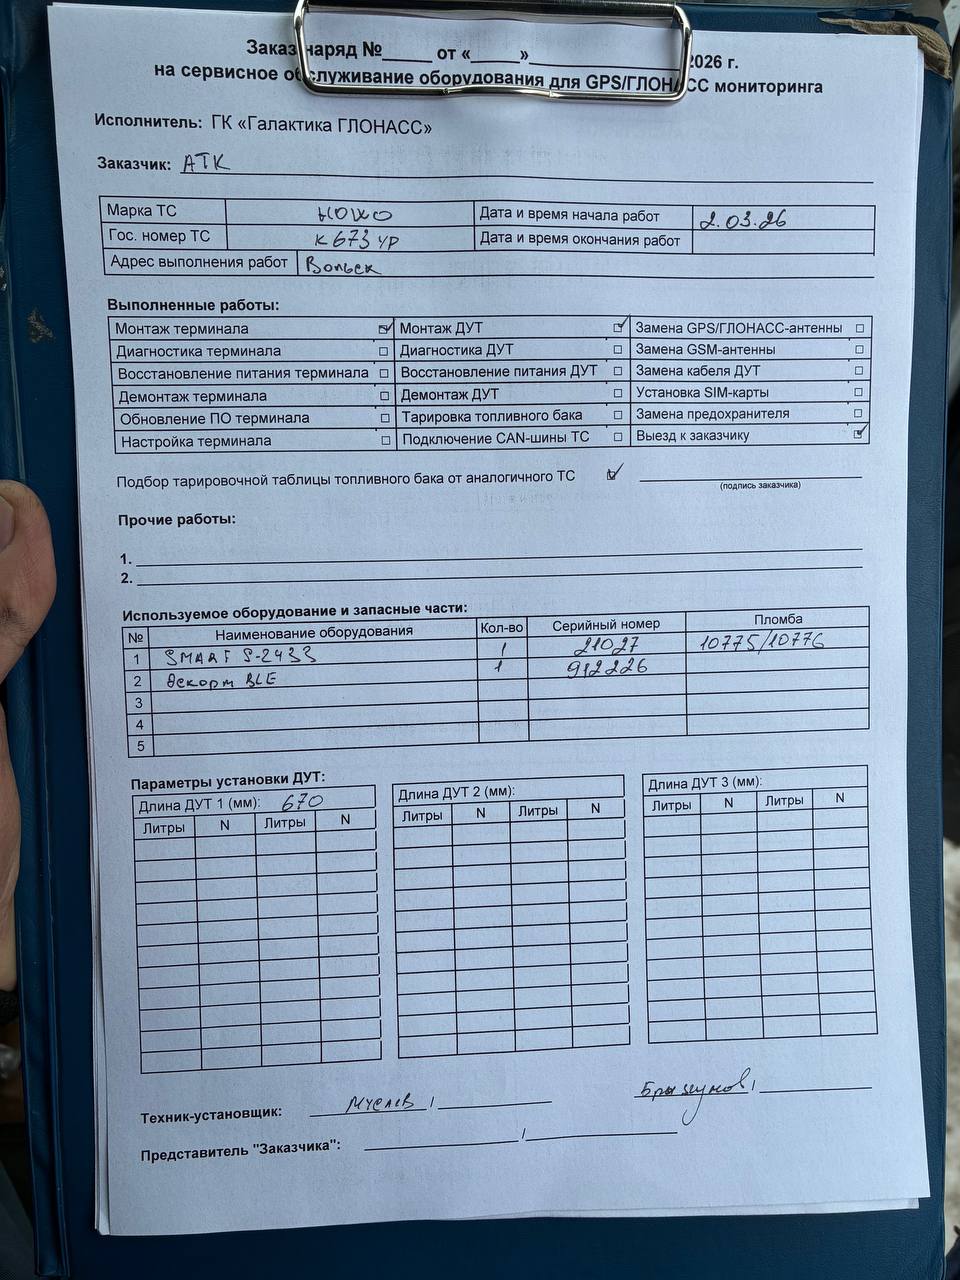 Заказ-наряд №_____ от «_____»________________ 2026 г.
на сервисное обслуживание оборудования для GPS/ГЛОНАСС мониторинга
Исполнитель: ГК «Галактика ГЛОНАСС»
Заказчик: АТК
Марка ТС НОХО Дата и время начала работ 2.03.26
Гос. номер ТС К673УР Дата и время окончания работ
Адрес выполнения работ Вольск
Выполненные работы:
Монтаж терминала ☑ Монтаж ДУТ ☑ Замена GPS/ГЛОНАСС-антенны ☐
Диагностика терминала ☐ Диагностика ДУТ ☐ Замена GSM-антенны ☐
Восстановление питания терминала ☐ Восстановление питания ДУТ ☐ Замена кабеля ДУТ ☐
Демонтаж терминала ☐ Демонтаж ДУТ ☐ Установка SIM-карты ☐
Обновление ПО терминала ☐ Тарировка топливного бака ☐ Замена предохранителя ☐
Настройка терминала ☐ Подключение CAN-шины ТС ☐ Выезд к заказчику ☑
Подбор тарировочной таблицы топливного бака от аналогичного ТС ☑
(подпись заказчика)
Прочие работы:
1.
2.
Используемое оборудование и запасные части:
№ Наименование оборудования Кол-во Серийный номер Пломба
1 SMART S-2433 1 21027 10775/10776
2 Эскорт BLE 1 912226
3
4
5
Параметры установки ДУТ:
Длина ДУТ 1 (мм): 670 Длина ДУТ 2 (мм): Длина ДУТ 3 (мм):
Литры N Литры N Литры N Литры N Литры N Литры N
Техник-установщик: / /
Представитель "Заказчика": /